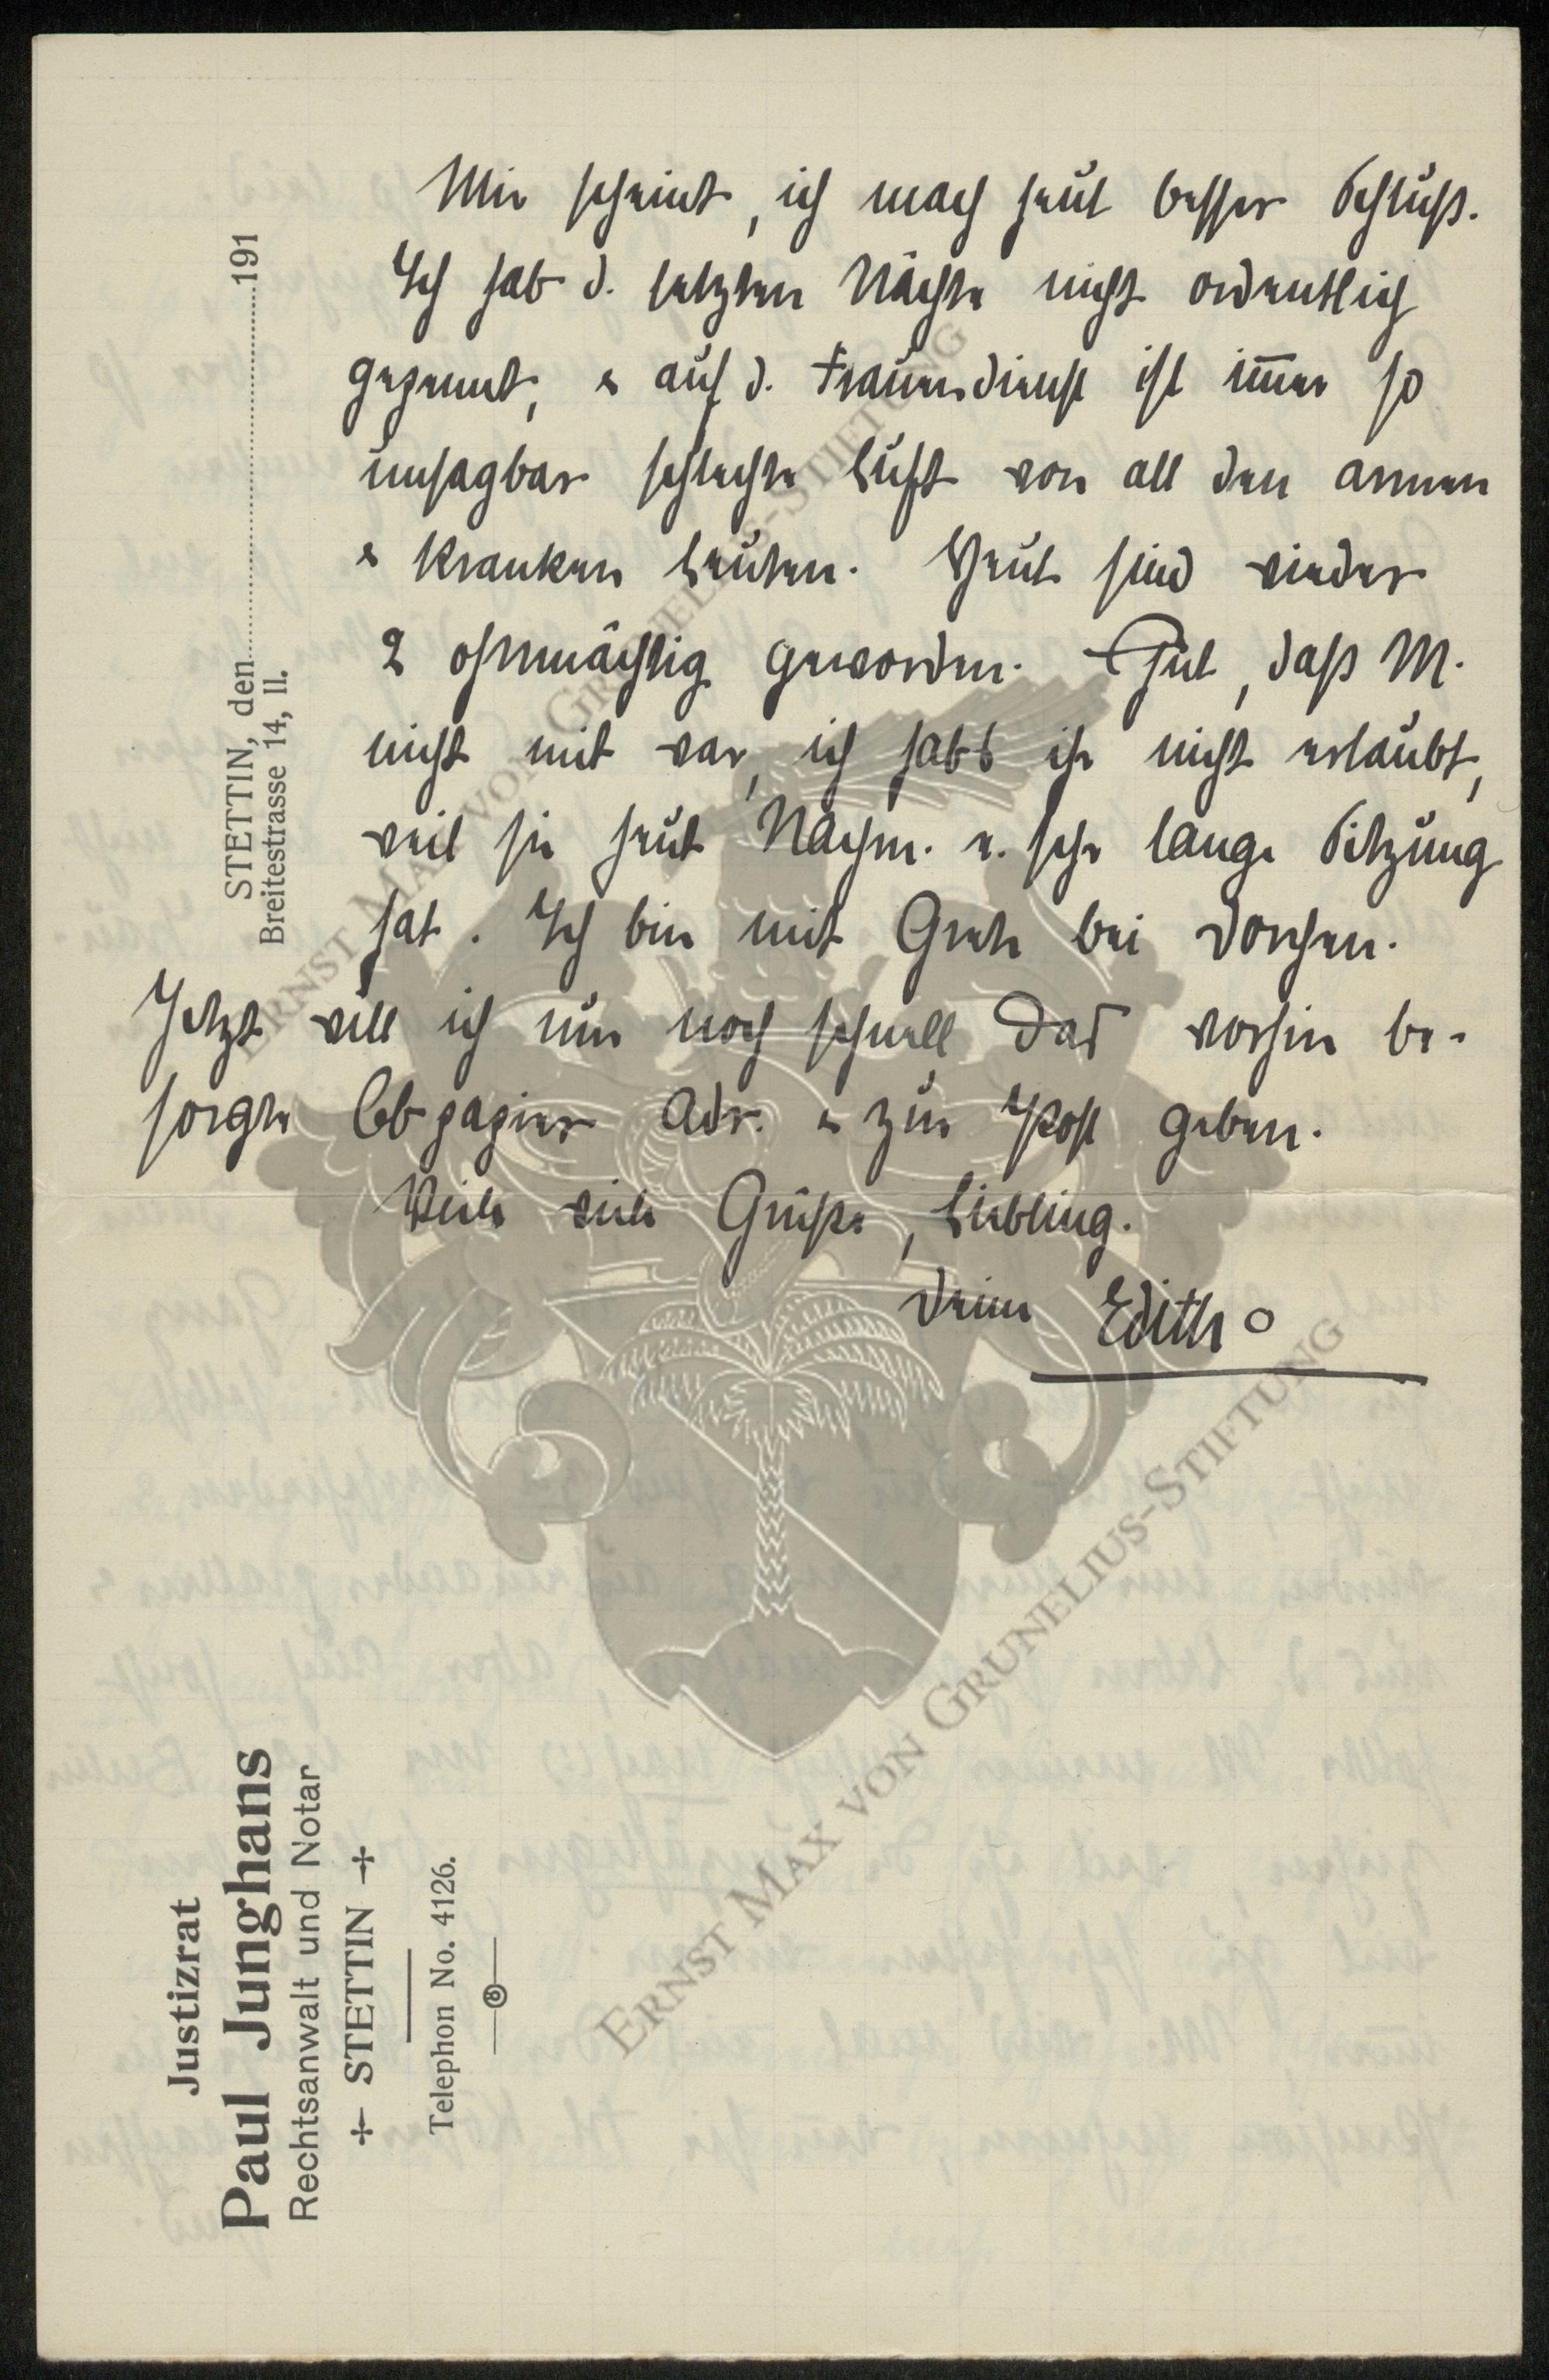 Mir scheint, ich mach heut besser Schluß.
Ich hab d. letzten Nächte nicht ordentlich
gepennt, & auf d. Frauendienst ist immer so
unsagbar schlechte Luft von all den armen
& kranken Leuten. Heut sind wieder
2 ohnmächtig geworden. Gut, daß M.
nicht mit war, ich habs ihr nicht erlaubt,
weil sie heut Nachm. e. sehr lange Sitzung
hat. Ich bin mit Grete bei Dorchen.
Jetzt will ich nur noch schnell das vorhin be-
sorgte Cbpapier Adr. & zur Post geben.
Viele viele Grüße, Liebling.
Deine Edith
STETTIN, den 191
Breitestrasse 14, II.
Justizrat
Paul Junghans
Rechtsanwalt und Notar
STETTIN
Telephon No. 4126.
ERNST MAX VON GRUNELIUS-STIFTUNG
ERNST MAX VON GRUNELIUS-STIFTUNG